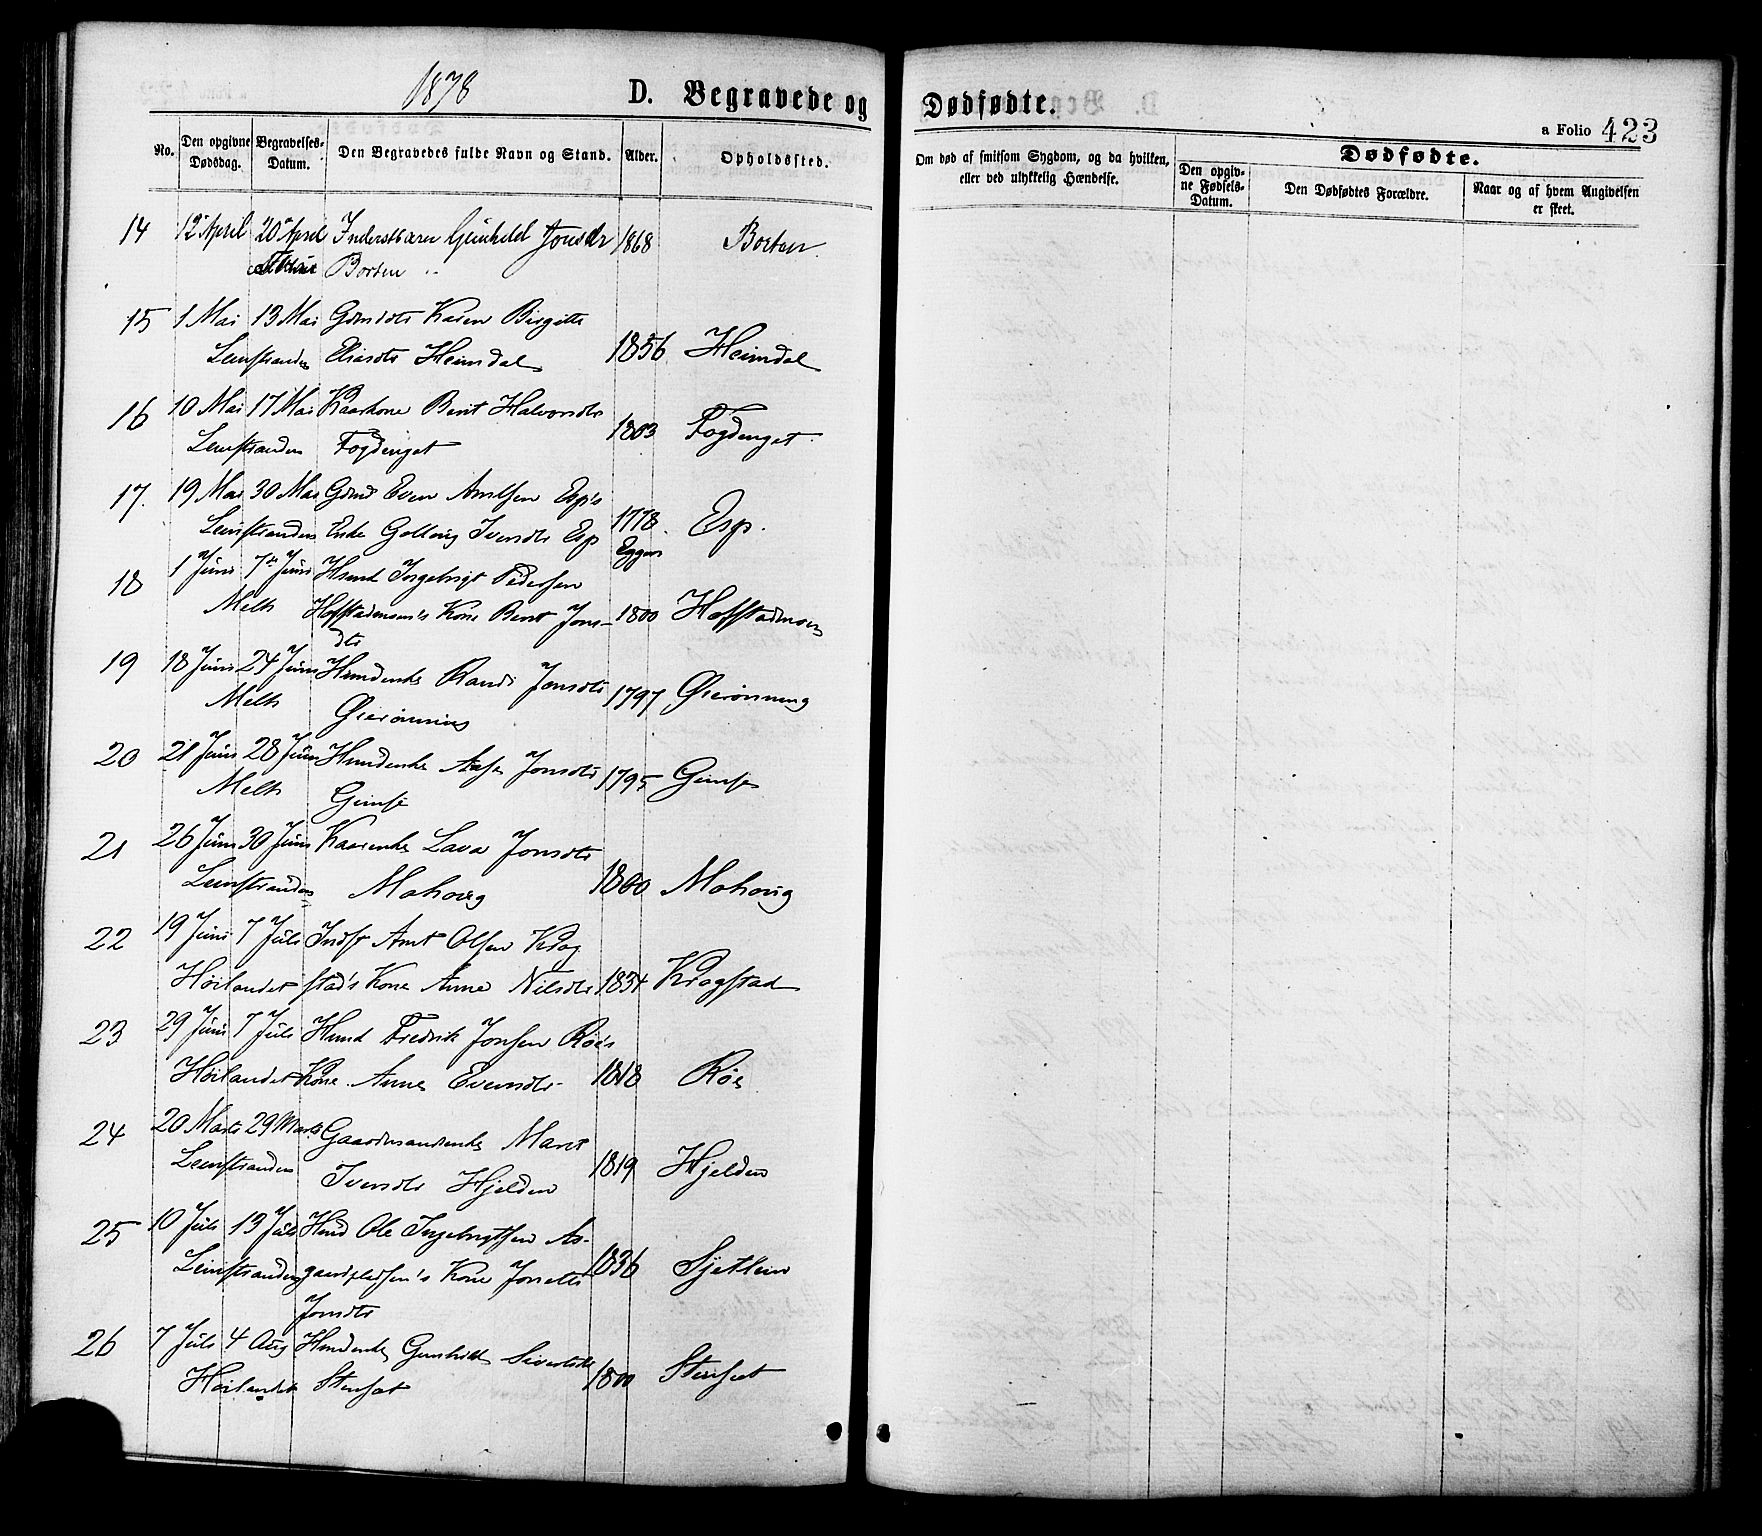 1878
D. Begravede og Dødfødte.
a Folio 423
No.
Den opgivne Dødsdag.
Begravelses-Datum.
Den Begravedes fulde Navn og Stand.
Alder.
Opholdssted.
Om død af smitsom Sygdom, og da hvilken,
eller ved ulykkelig Hændelse.
Dødfødte.
Den opgiv-
ne Fødsels-
Datum.
Den Dødfødtes Forældre.
Naar og af hvem Angivelsen
er skeet.
14 12 April 20 April Gunhild Jonsdr 1868 Borten
Borten
15 1 Mai 13 Mai Karen Birgitte
Leinstranden Eliasdtr Heimdal 1856 Heimdal
16 10 Mai 17 Mai Kaarkone Berit Halvorsdtr
Leinstranden Fogdenget 1803 Fogdenget
17. 19 Mai 30 Mai Gdmd Even Arntsen Esp's
Leinstranden Enke Iversdtr Esp 1778 Esp.
18 1 Juni 7de Juni Hsmd Ingebrigt Pedersen
Melh Hofstadmoen's Kone Berit Jons- 1800 Hofstadmoen
dtr
19 18 Juni 24 Juni Husmdenke Randi Jonsdtr
Melh 1797
20 21 Juni 28 Juni Hsmdenke Jonsdtr 1795 Gimse
Melh Gimse
21 26 Juni 30 Juni Kaarenke Lava Jonsdtr
Leinstranden Mohoug 1800 Mohoug
22 19 Juni 7 Juli Indst Arnt Olsen Krog
Høilandet stad's Kone Anne Nilsdtr 1834 Krogstad
23 29 Juni 7 Juli Hsmd Fredrik Jonsen Røe's
Høilandet Kone Anne Evensdtr 1818 Røe
24 20 Marts 29 Marts Gaardmandsenke Marit
Leinstranden Iversdtr Hjelden 1819 Hjelden
25 10 Juli 13 Juli Hsmd Ole Ingebrigtsen As-
Leinstranden Kone 1836 Sjetlein
Jonsdtr
26 7 Juli 4 Aug Hsmdenke Gunhild Sivertsdtr
Høilandet Stenset 1800 Stenset